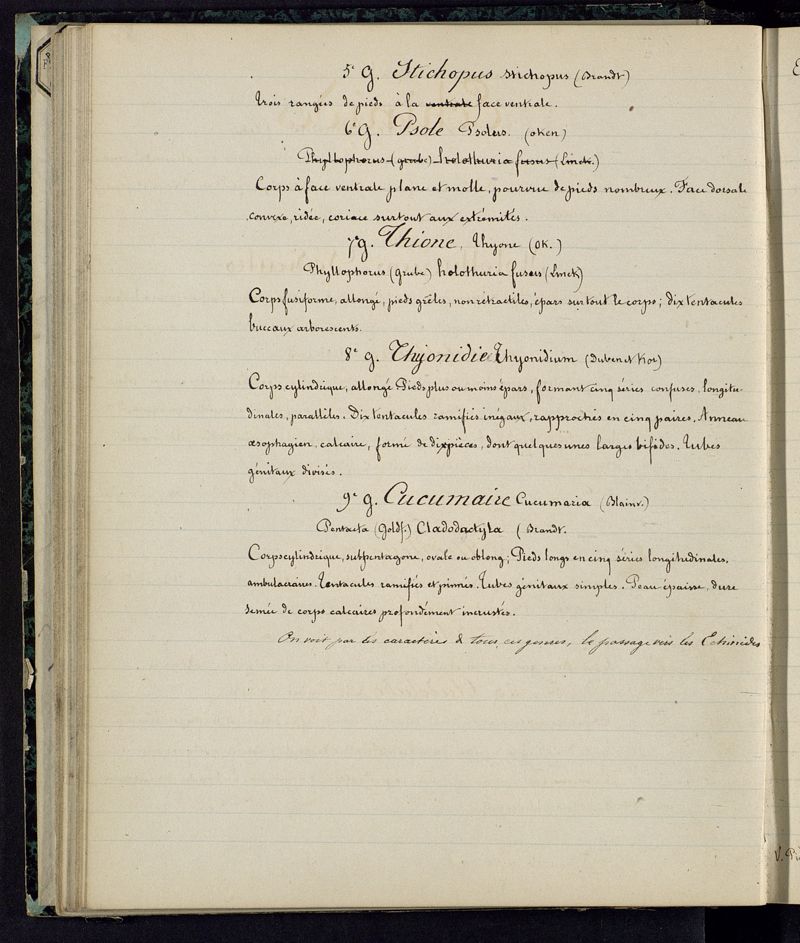 5e g. Stichopus stichopus (Brandt)
Trois rangées de pieds à la ventrale face ventrale.
6e g. Psole Psolus. (oken)
Phyllophorus (grube) holothuria fusus (Linck.)
Corps à face ventrale plane et molle, pourvue de pieds nombreux. Face dorsale
convexe, ridée, coriace surtout aux extrémités.
7e g. Thione, Thyone (OK.)
Phyllophorus (grube) holothuria fusus (Linck)
Corps fusiforme, allongé, pieds grêles, non rétractiles, épars sur tout le corps; dix tentacules
buccaux arborescents.
8e g. Thyonidie Thyonidium (Duben et Kor)
Corps cylindrique, allongé Pieds plus ou moins épars, formant cinq séries confuses, longitu-
dinales, parallèles. Dix tentacules ramifiés inégaux, rapprochés en cinq paires. Anneau
œsophagien, calcaire, formé de dix pièces, dont quelques unes larges bifides. Tubes
génitaux divisés.
9e g. Cucumaire Cucumaria (Blainv.)
Pentacta (Goldf.) Cladodactyla (Brandt.
Corps cylindrique, subpentagone, ovale ou oblong; Pieds longs en cinq séries longitudinales,
ambulacraires. Tentacules ramifiés et pinnés. Tubes génitaux simples. Peau épaisse, dure
semée de corps calcaires profondément incrustés.
On voit par les caractères de tous ces genres, le passage vers les Echinides